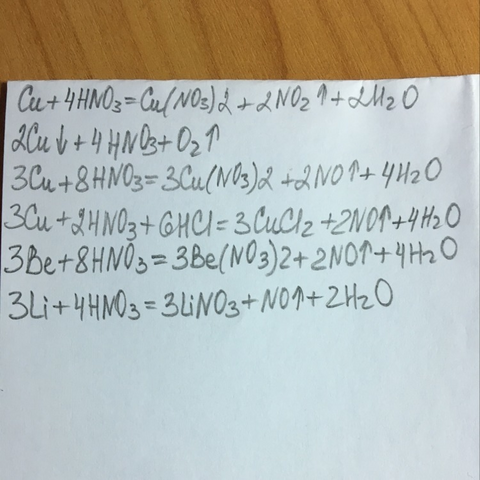 Cu+4HNO3=Cu(NO3)2+2NO2↑+2H2O
2Cu↓+4HNO3+O2↑
3Cu+8HNO3=3Cu(NO3)2+2NO↑+4H2O
3Cu+2HNO3+6HCl=3CuCl2+2NO↑+4H2O
3Be+8HNO3=3Be(NO3)2+2NO↑+4H2O
3Li+4HNO3=3LiNO3+NO↑+2H2O